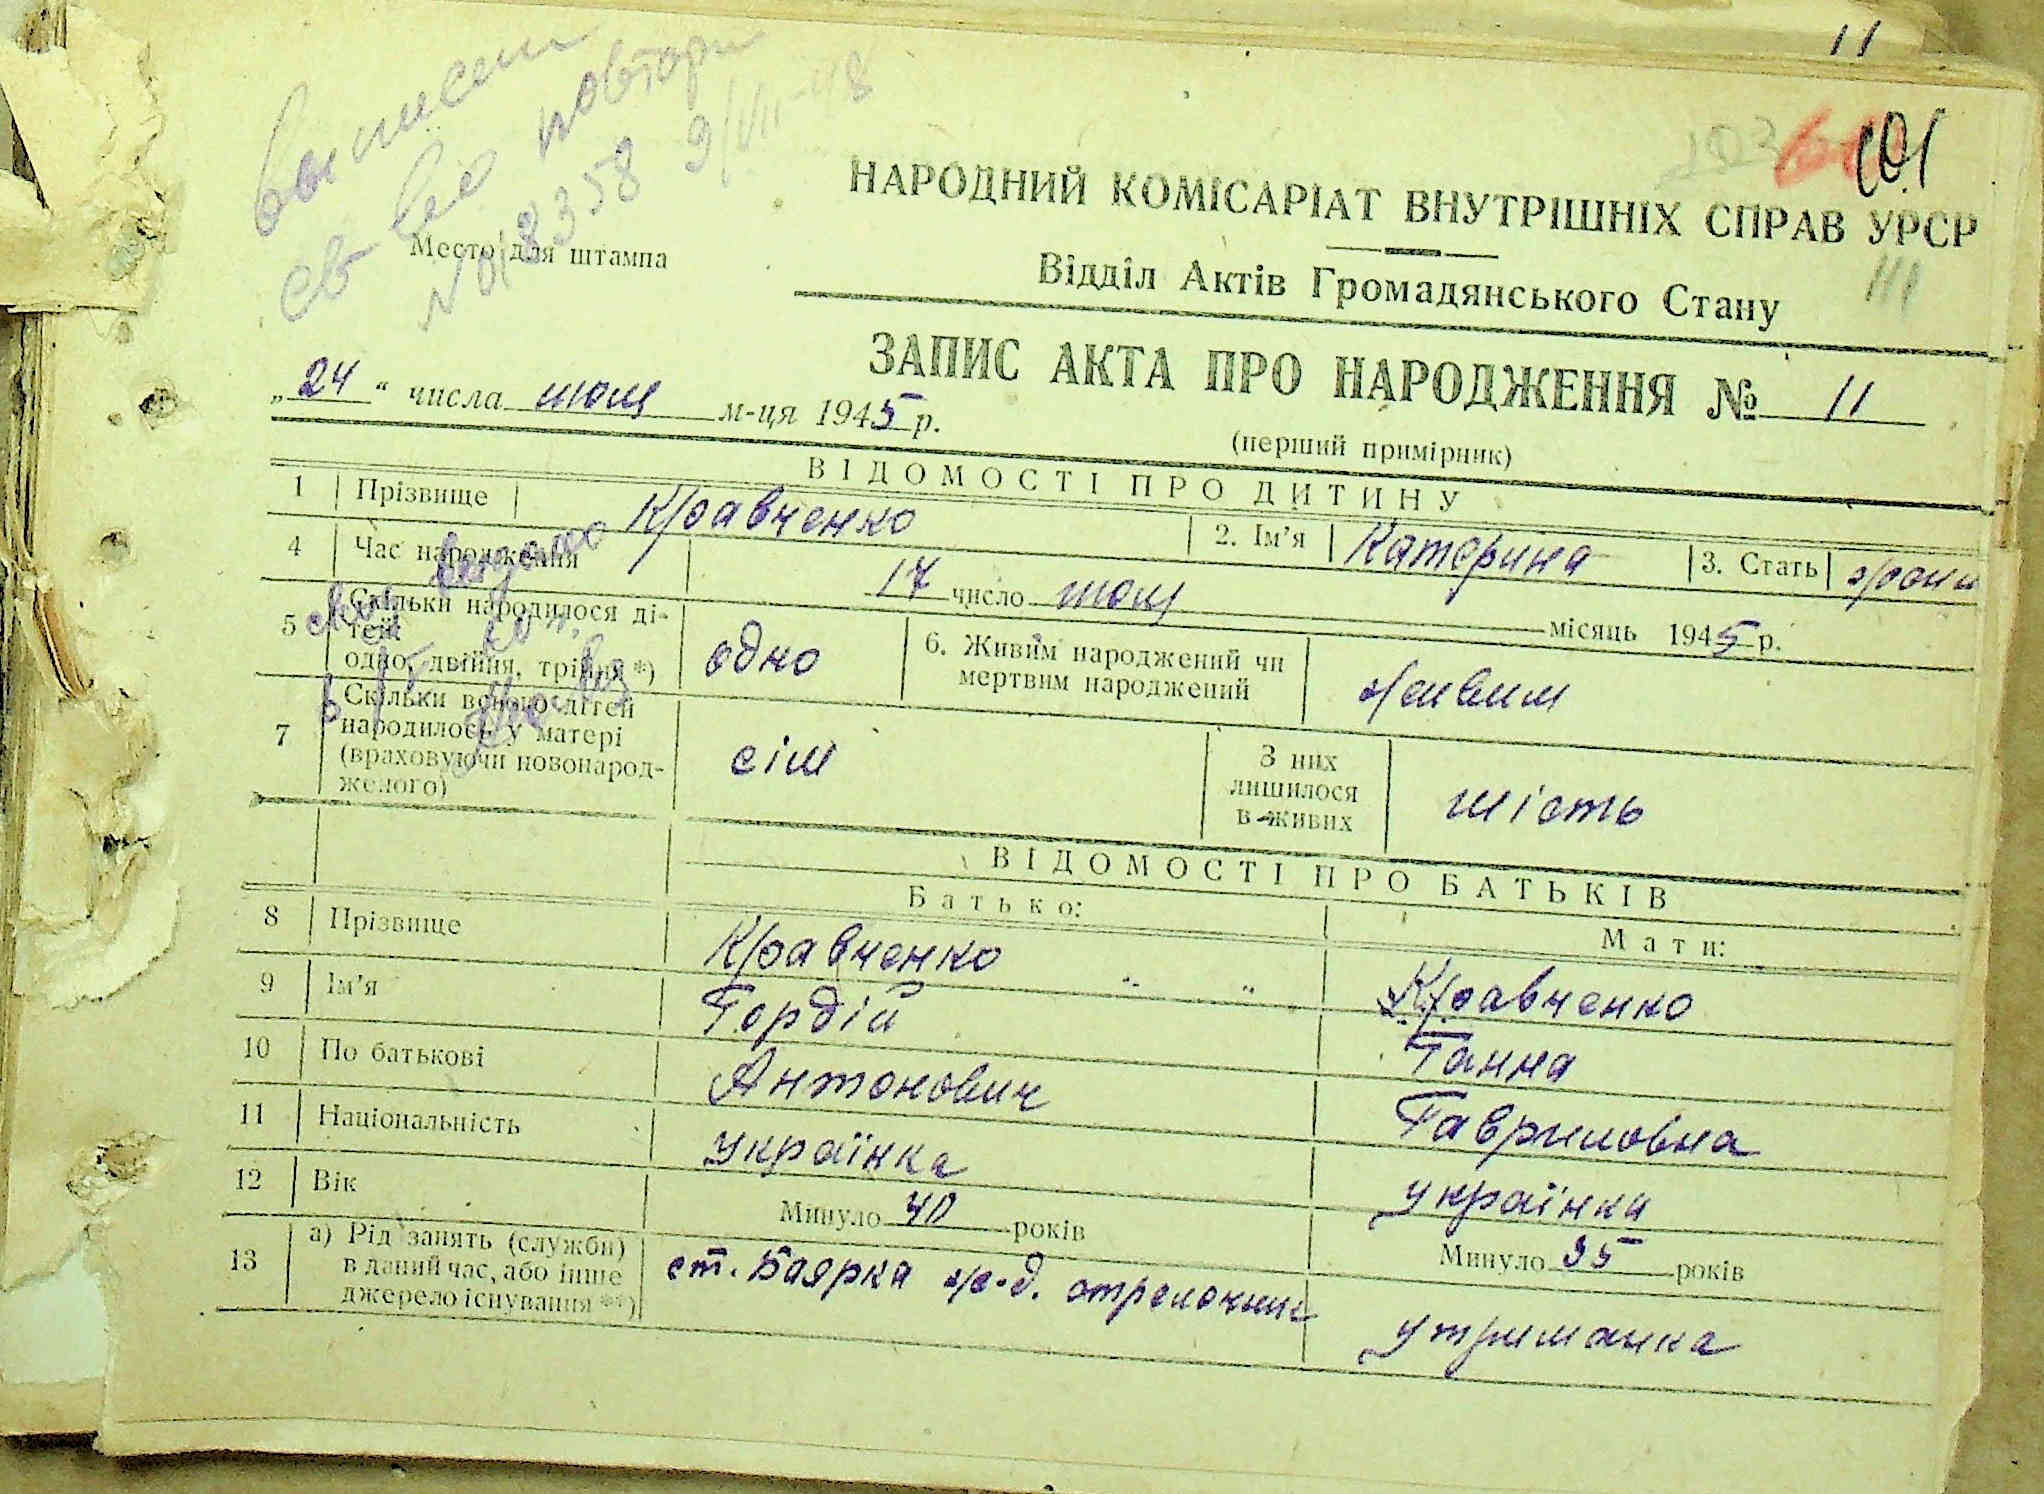 11
выписан
св-во повторн
№ 018358 9/VII-48
101
НАРОДНИЙ КОМІСАРІАТ ВНУТРІШНІХ СПРАВ УРСР
Место для штампа
Відділ Актів Громадянського Стану
111
ЗАПИС АКТА ПРО НАРОДЖЕННЯ № 11
„24“ числа июля м-ця 1945 р.
(перший примірник)
ВІДОМОСТІ ПРО ДИТИНУ
1 Прізвище Кравченко 2. Ім’я Катерина 3. Стать жони
4 Час народження 17 число июля місяць 1945 р.
5 Скільки народилося ді-
тей:
одно, двійня, трійня *) одно 6. Живим народжений чи
мертвим народжений живим
7 Скільки всього дітей
народилось у матері
(враховуючи новонарод-
желого) сім З них
лишилося
в живих шість
ВІДОМОСТІ ПРО БАТЬКІВ
Батько: Мати:
8 Прізвище Кравченко Кравченко
9 Ім’я Гордій Ганна
10 По батькові Антонович Гавриловна
11 Національність українка українка
12 Вік Минуло 40 років Минуло 35 років
13 а) Рід занять (служби)
в даний час, або інше
джерело існування **) ст. Боярка ж-д. стрелочник утриманка